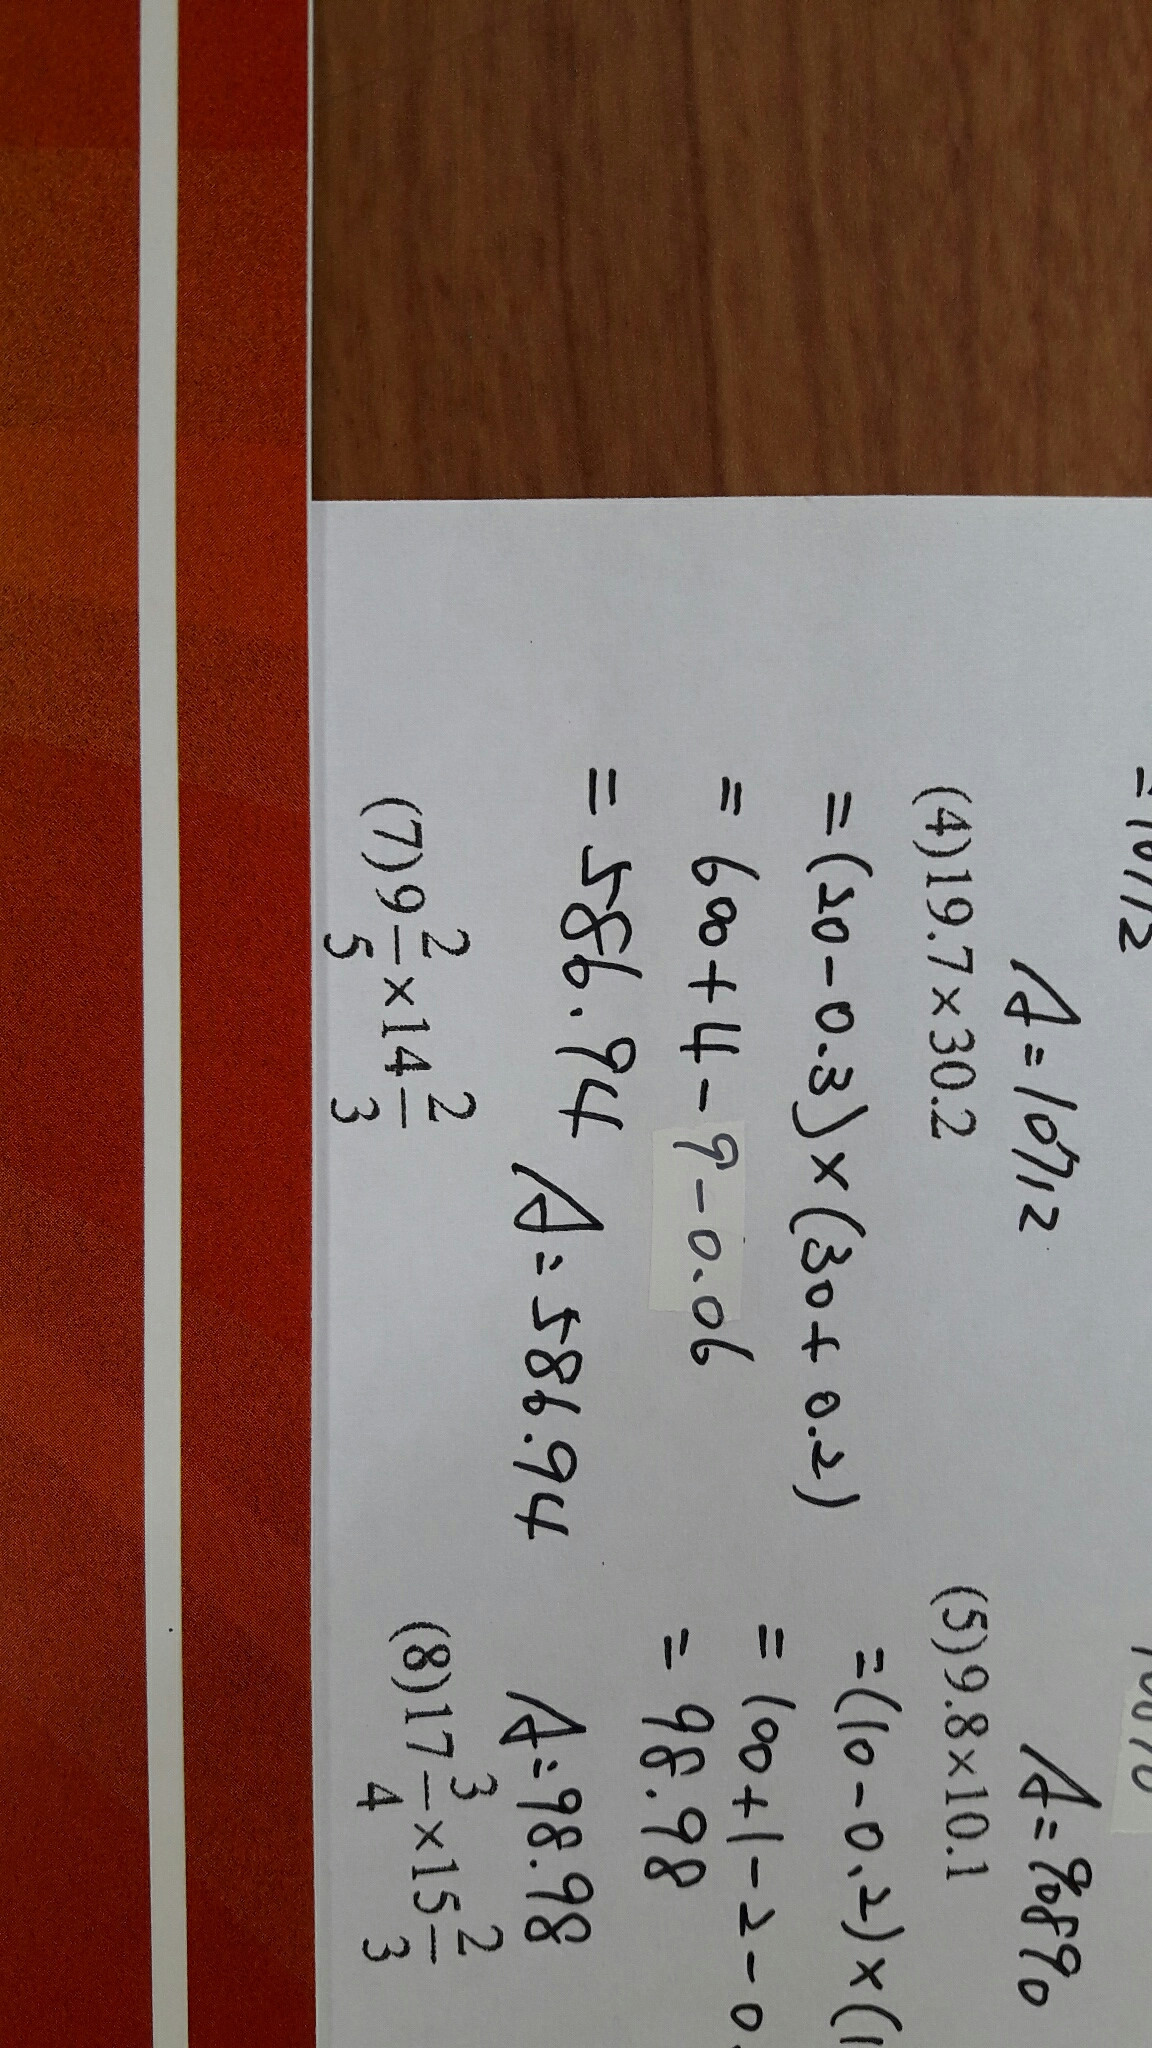 A=10712
A=9890
(4)19.7×30.2
=(20-0.3)×(30+0.2)
=600+4-9-0.06
=586.94
A=586.94
(5)9.8×10.1
=(10-0.2)×(1
=100+1-2-0.
=98.98
A=98.98
(7)9 2/5 ×14 2/3
(8)17 3/4 ×15 2/3